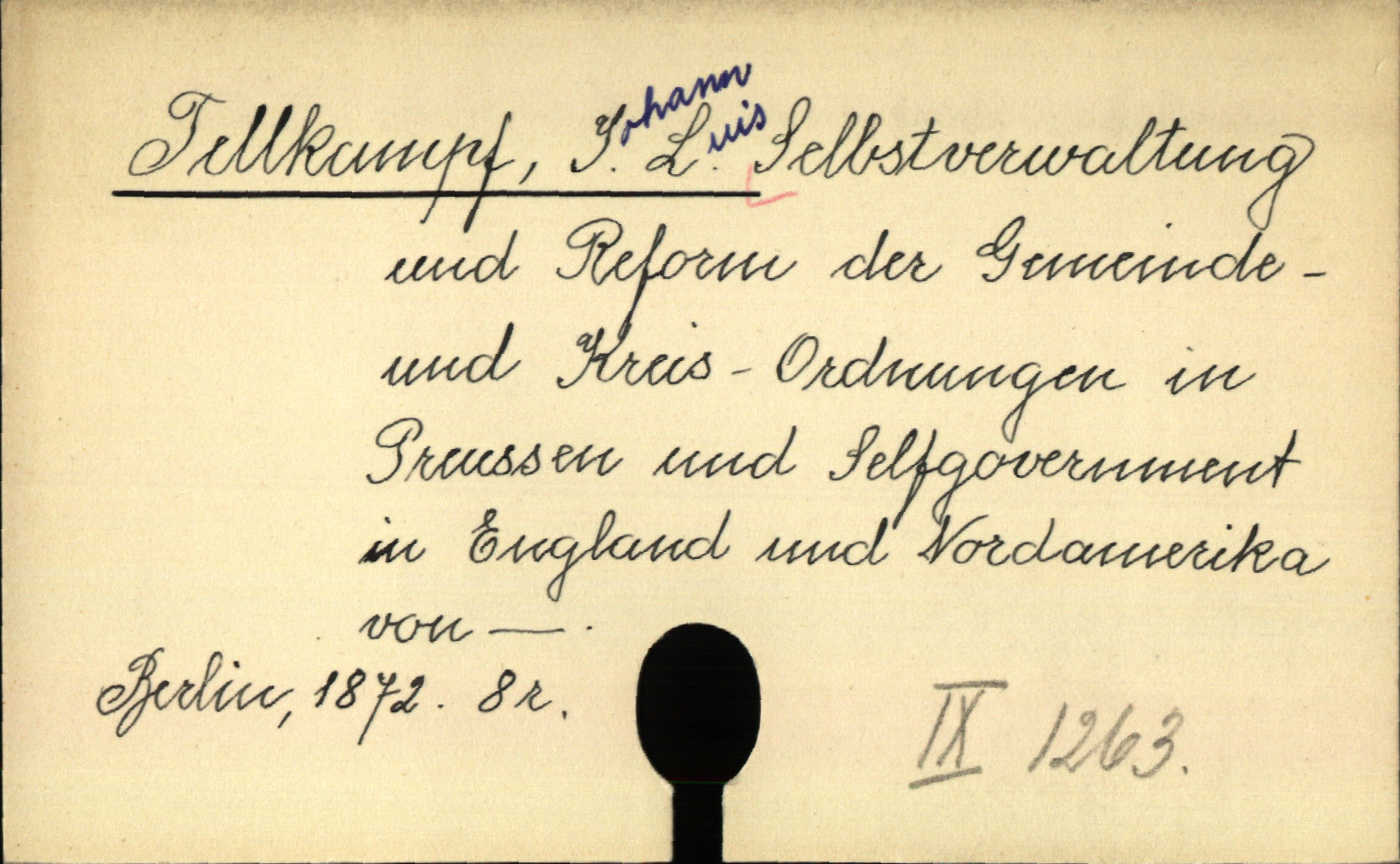 Tellkampf, Johann Luis Selbstverwaltung
und Reform der Gemeinde-
und Kreis-Ordnungen in
Preussen und Selfgovernment
in England und Nordamerika
von —.
Berlin, 1872. 8r.
IX 1263.